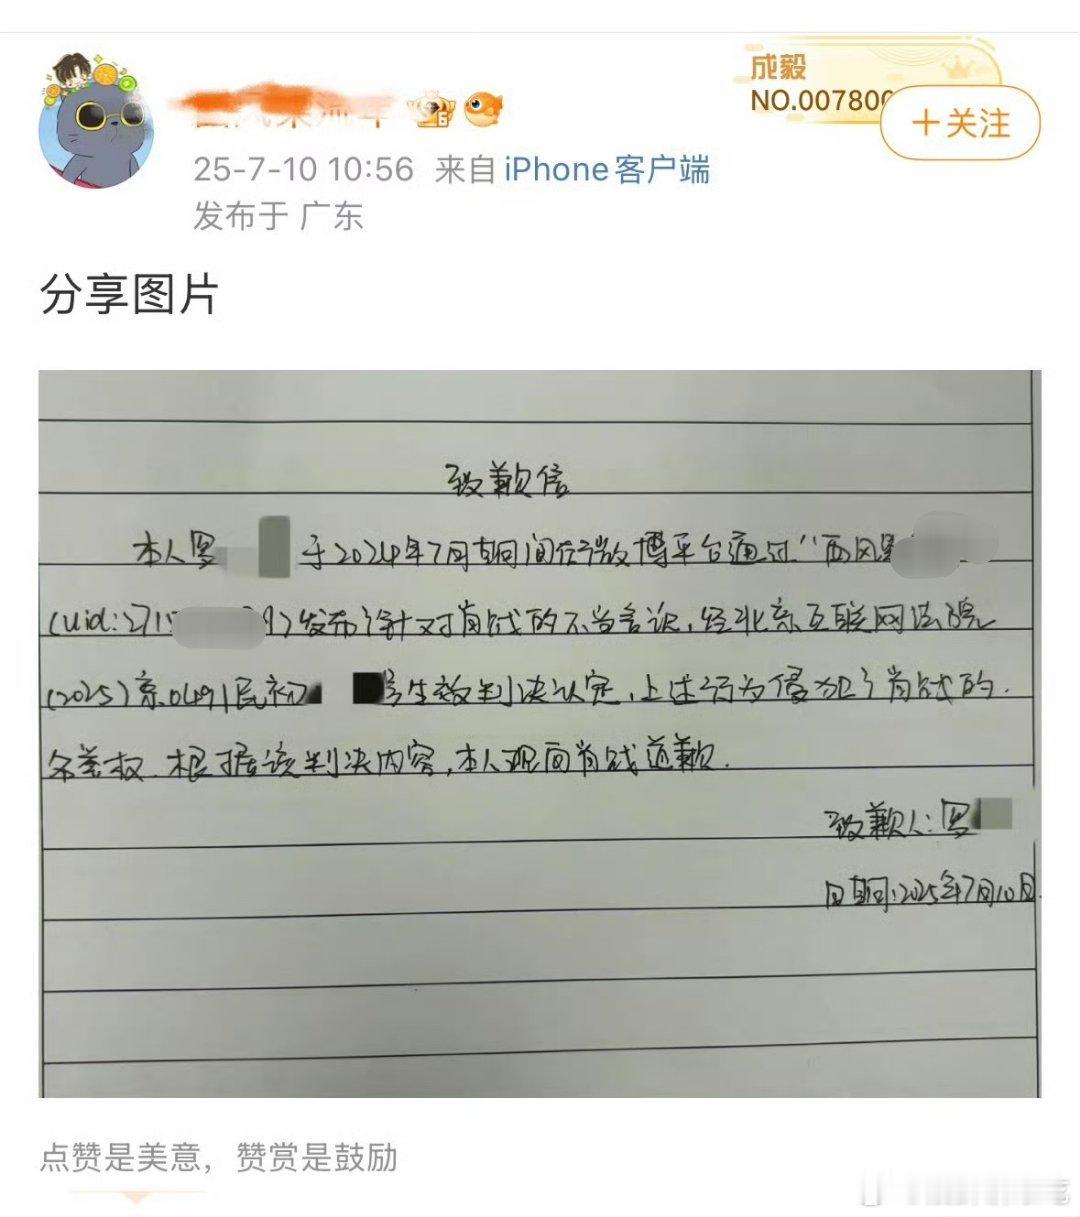 成毅
NO.007800
+关注
25-7-10 10:56 来自 iPhone客户端
发布于 广东
分享图片
致歉信
本人罗 于2024年7月期间在微博平台通过“西风
(uid:271 9)发布针对肖战的不当言论,经北京互联网法院
(2025)京0491民初 号生效判决认定,上述行为侵犯了肖战的
名誉权.根据该判决内容,本人现向肖战道歉.
致歉人:罗
日期:2025年7月10日
点赞是美意,赞赏是鼓励